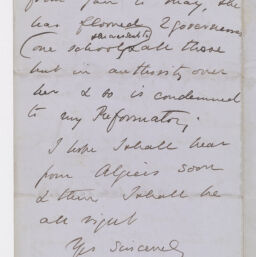 from Jan to May, she
has floored 2 governesses
(one school & all those
put in authority over
her & so is condemned
to my Reformatory.
I hope I shall hear
from Algiers soon
& then I shall be
all right
Yrs sincerely